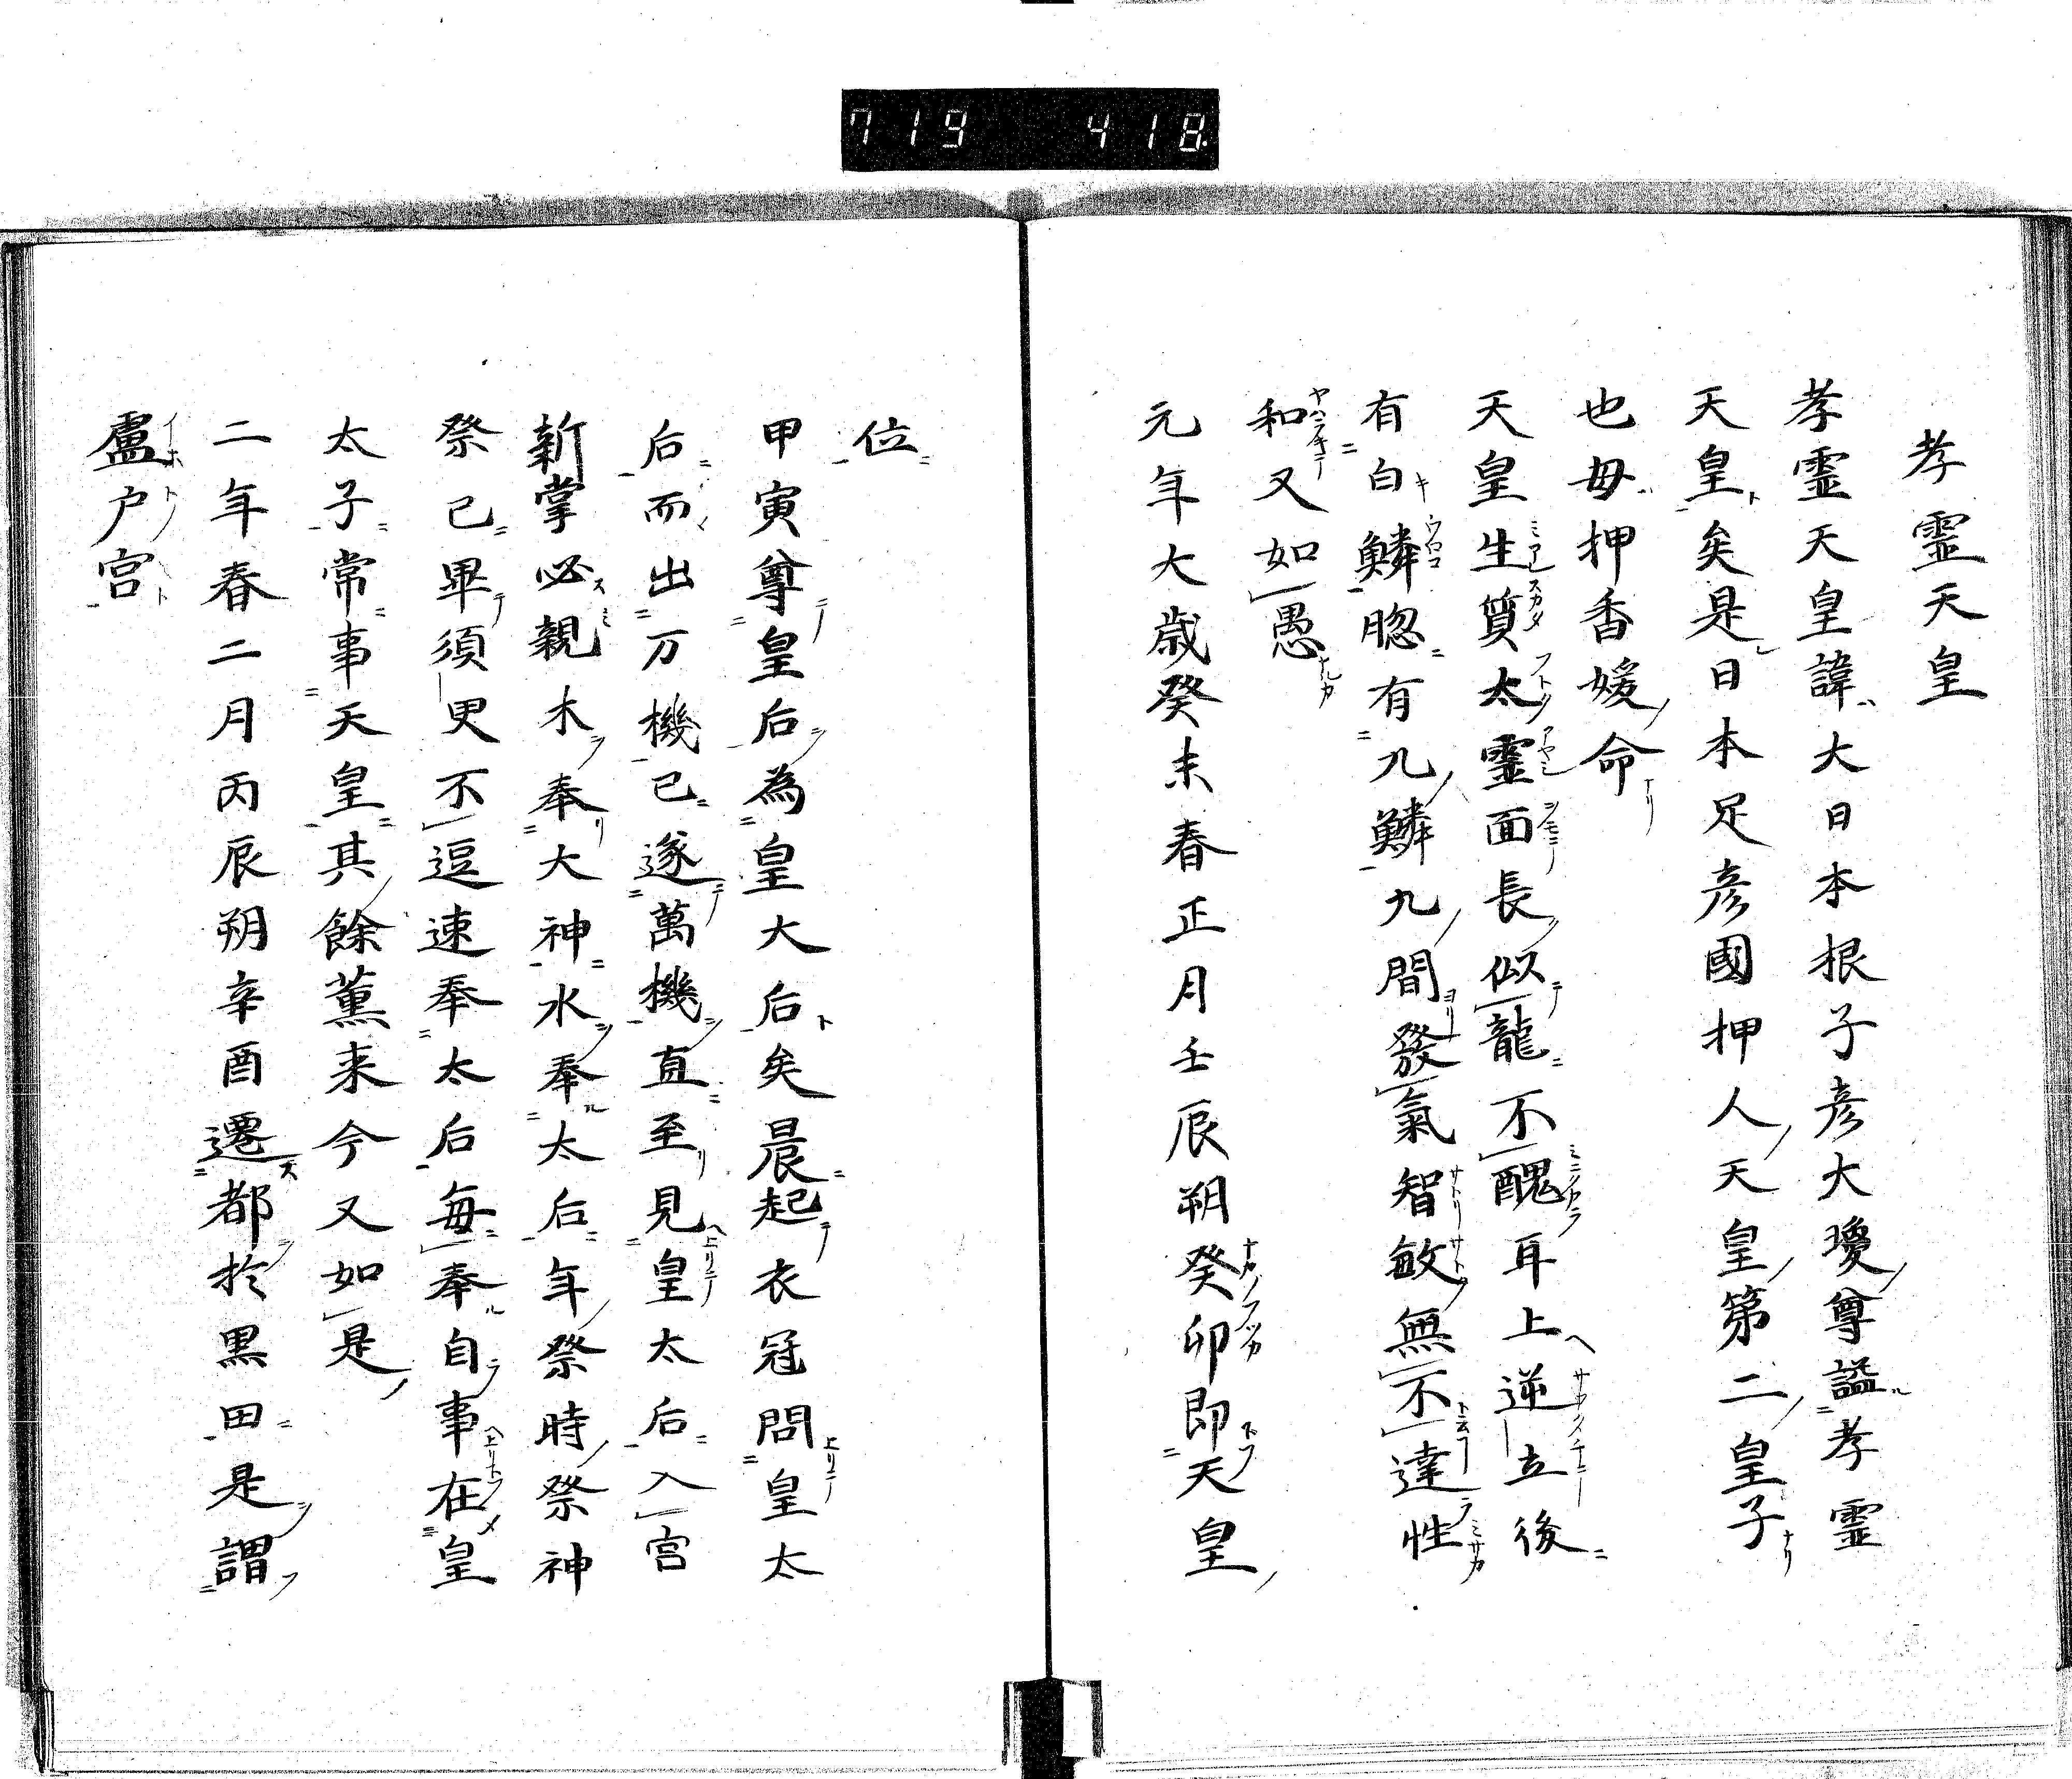 719 418
孝霊天皇
孝霊天皇諱大日本根子彦大瓊尊謚孝霊
天皇矣是日本足彦國押人天皇第二皇子
也母押香媛命
天皇生質太霊面長似龍不醜耳上逆立後
有白鱗腮有九鱗九間發氣智敏無不達性
和又如愚
元年大歳癸未春正月壬辰朔癸卯即天皇
位
甲寅尊皇后為皇大后矣晨起衣冠問皇太
后而出万機已遂萬機直至見皇太后入宮
新掌必親木奉大神水奉太后年祭時祭神
祭已畢須更不逗速奉太后毎奉自事在皇
太子常事天皇其餘薫来今又如是
二年春二月丙辰朔辛酉遷都於黒田是謂
盧戸宮